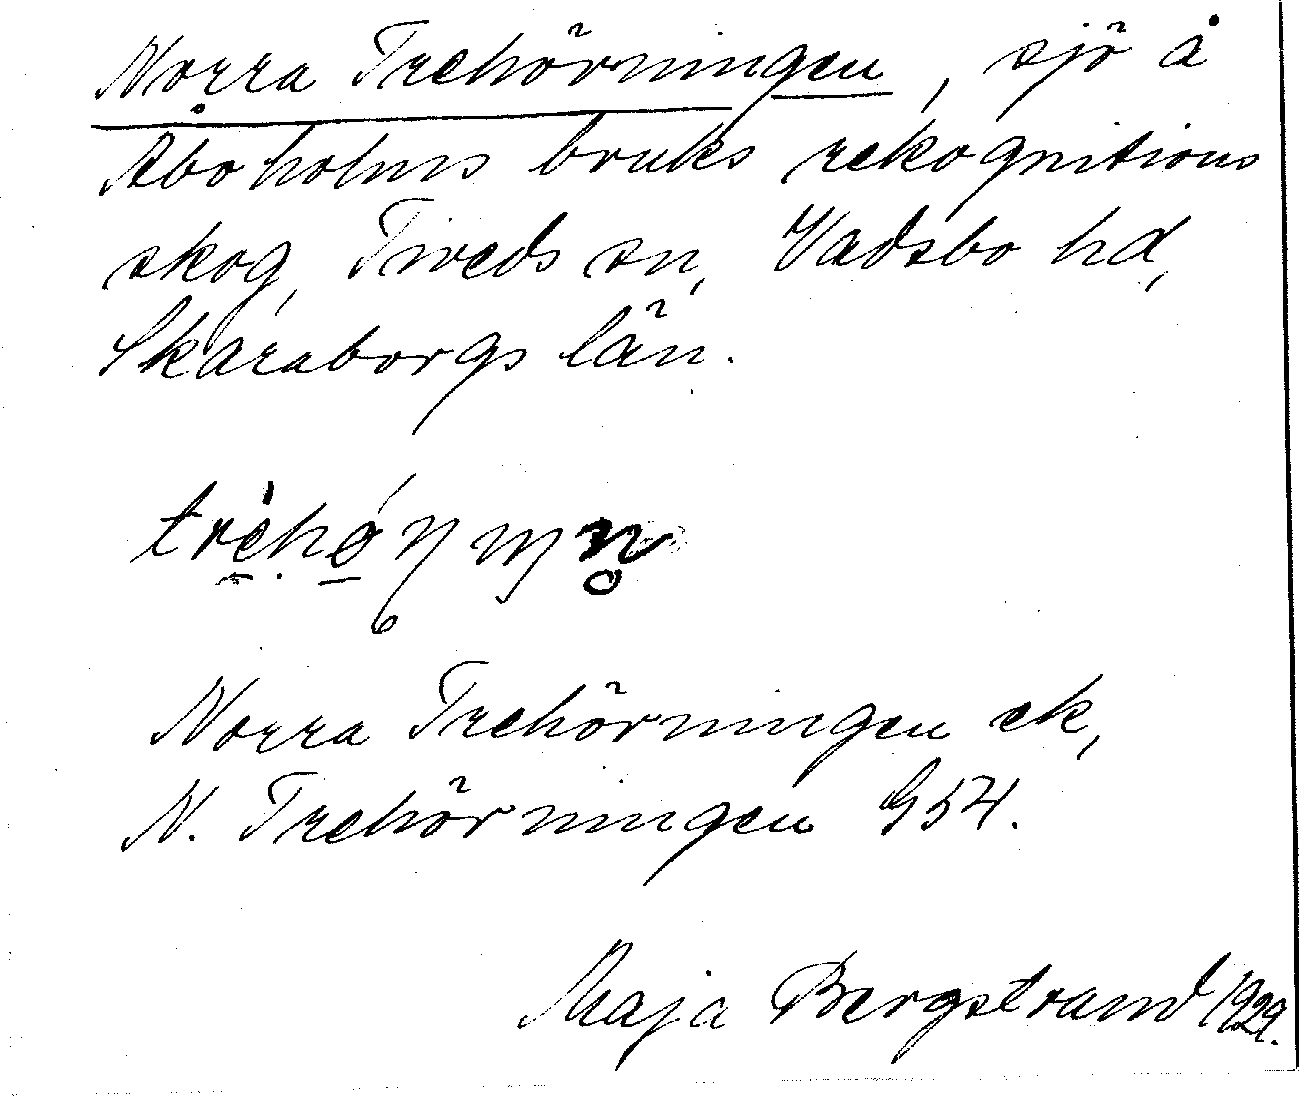 Norra Trehörningen, sjö å
Åboholms bruks rekognitions
skog, Tiveds sn, Vadsbo hd,
Skaraborgs län.
Norra Trehörningen ek,
N. Trehörningen G54.
Maja Bergstrand 1929.